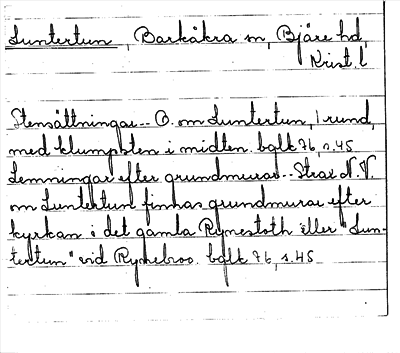 Luntertun, Barkåkra sn, Bjäre hd,
Krist. l
Stensättningar -- O. om Luntertun, 1 rund,
med klumpsten i midten. bglk 76, s. 45
Lemningar efter grundmurar -- Strax N.V.
om Luntertun finnas grundmurar efter
kyrkan i det gamla Rynestoth eller "Lun-
tertun" vid Rynebroo. bglk 76, s. 45